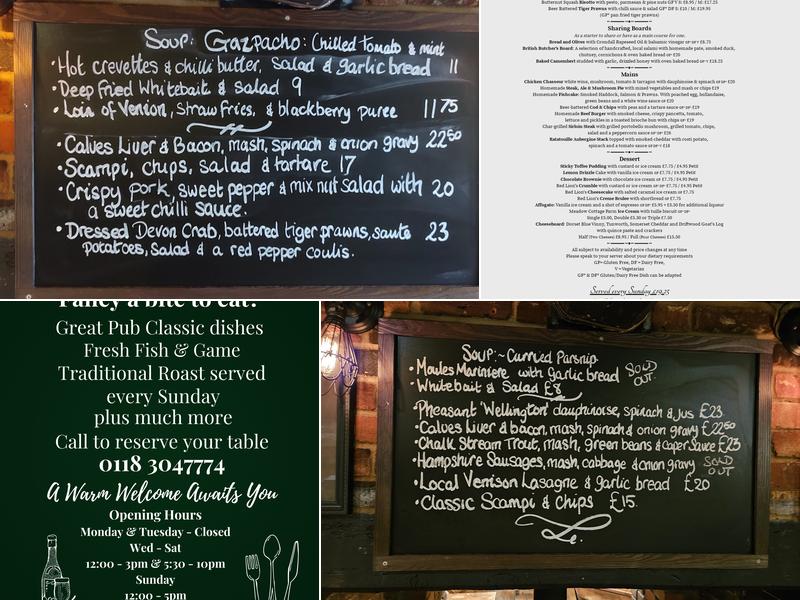 Soup: Gazpacho: Chilled Tomato & mint
• Hot crevettes & chilli butter, Salad & garlic bread 11
• Deep Fried Whitebait & salad 9
• Loin of Venison, Straw Fries, & blackberry puree 11 75
• Calves Liver & Bacon, mash, spinach & onion gravy 22 50
• Scampi, chips, salad & tartare 17
• Crispy pork, sweet pepper & mix nut Salad with 20
a sweet chilli sauce.
• Dressed Devon Crab, battered tiger prawns, saute 23
potatoes, Salad & a red pepper coulis.
Butternut Squash Risotto with pesto, parmesan & pine nuts
Beer Battered Tiger Prawns with chilli sauce & salad
(GF* pan fried tiger prawns)
Sharing Boards
As a starter to share or have as a main course for one.
Bread and Olives with Cotswold Rapeseed Oil & balsamic vinegar
British Butcher's Board: A selection of handcrafted, local salami with homemade pate, smoked duck,
chutney, cornichons & oven baked bread
Baked Camembert studded with garlic, drizzled honey with oven baked bread
Mains
Chicken Chasseur white wine, mushroom, tomato & tarragon with dauphinoise & spinach
Homemade Steak, Ale & Mushroom Pie with mixed vegetables and mash or chips £19
Homemade Fishcake: Smoked Haddock, Salmon & Prawns. With poached egg, hollandaise,
green beans and a white wine sauce
Beer-battered Cod & Chips with peas and a tartare sauce
Homemade Beef Burger with smoked cheese, crispy pancetta, tomato,
lettuce and pickles in a toasted brioche bun with chips
Char-grilled Sirloin Steak with grilled portobello mushroom, grilled tomato, chips,
salad and a peppercorn sauce
Ratatouille Aubergine Stack topped with smoked cheddar with rosti potato,
spinach and a tomato sauce
Dessert
Sticky Toffee Pudding with custard or ice cream £7.75 / £4.95 Petit
Lemon Drizzle Cake with vanilla ice cream £7.75 / £4.95 Petit
Chocolate Brownie with chocolate ice cream £7.75 / £4.95 Petit
Red Lion's Crumble with custard or ice cream £7.75 / £4.95 Petit
Red Lion's Cheesecake with salted caramel ice cream £7.75
Red Lion's Creme Brulee with shortbread £7.75
Affogato: Vanilla ice cream and a shot of espresso £5.95 + £3.50 for additional liqueur
Meadow Cottage Farm Ice Cream with tuile biscuit
Single £3.00, Double £5.50 or Triple £7.50
Cheeseboard: Dorset Blue Vinny, Tunworth, Somerset Cheddar and Driftwood Goat's Log
with quince paste and crackers
All subject to availability and price changes at any time
Please speak to your server about your dietary requirements
GF=Gluten Free, DF = Dairy Free,
V = Vegetarian
GF* & DF* Gluten/Dairy Free Dish can be adapted
Served every Sunday
Fancy a bite to eat?
Great Pub Classic dishes
Fresh Fish & Game
Traditional Roast served
every Sunday
plus much more
Call to reserve your table
0118 3047774
A Warm Welcome Awaits You
Opening Hours
Monday & Tuesday - Closed
Wed - Sat
12:00 - 3pm & 5:30 - 10pm
Sunday
12:00 - 5pm
Soup:~ Curried Parsnip.
• Moules Mariniere with garlic bread SOLD OUT
• Whitebait & Salad £8
• Pheasant 'Wellington' dauphinoise, spinach & Jus £23
• Calves Liver & bacon, mash, spinach & onion gravy £22 50
• Chalk Stream Trout, mash, green beans & caper sauce £23
• Hampshire Sausages, mash, cabbage & onion gravy SOLD OUT
• Local Venison Lasagne & garlic bread £20
• Classic Scampi & Chips £15.